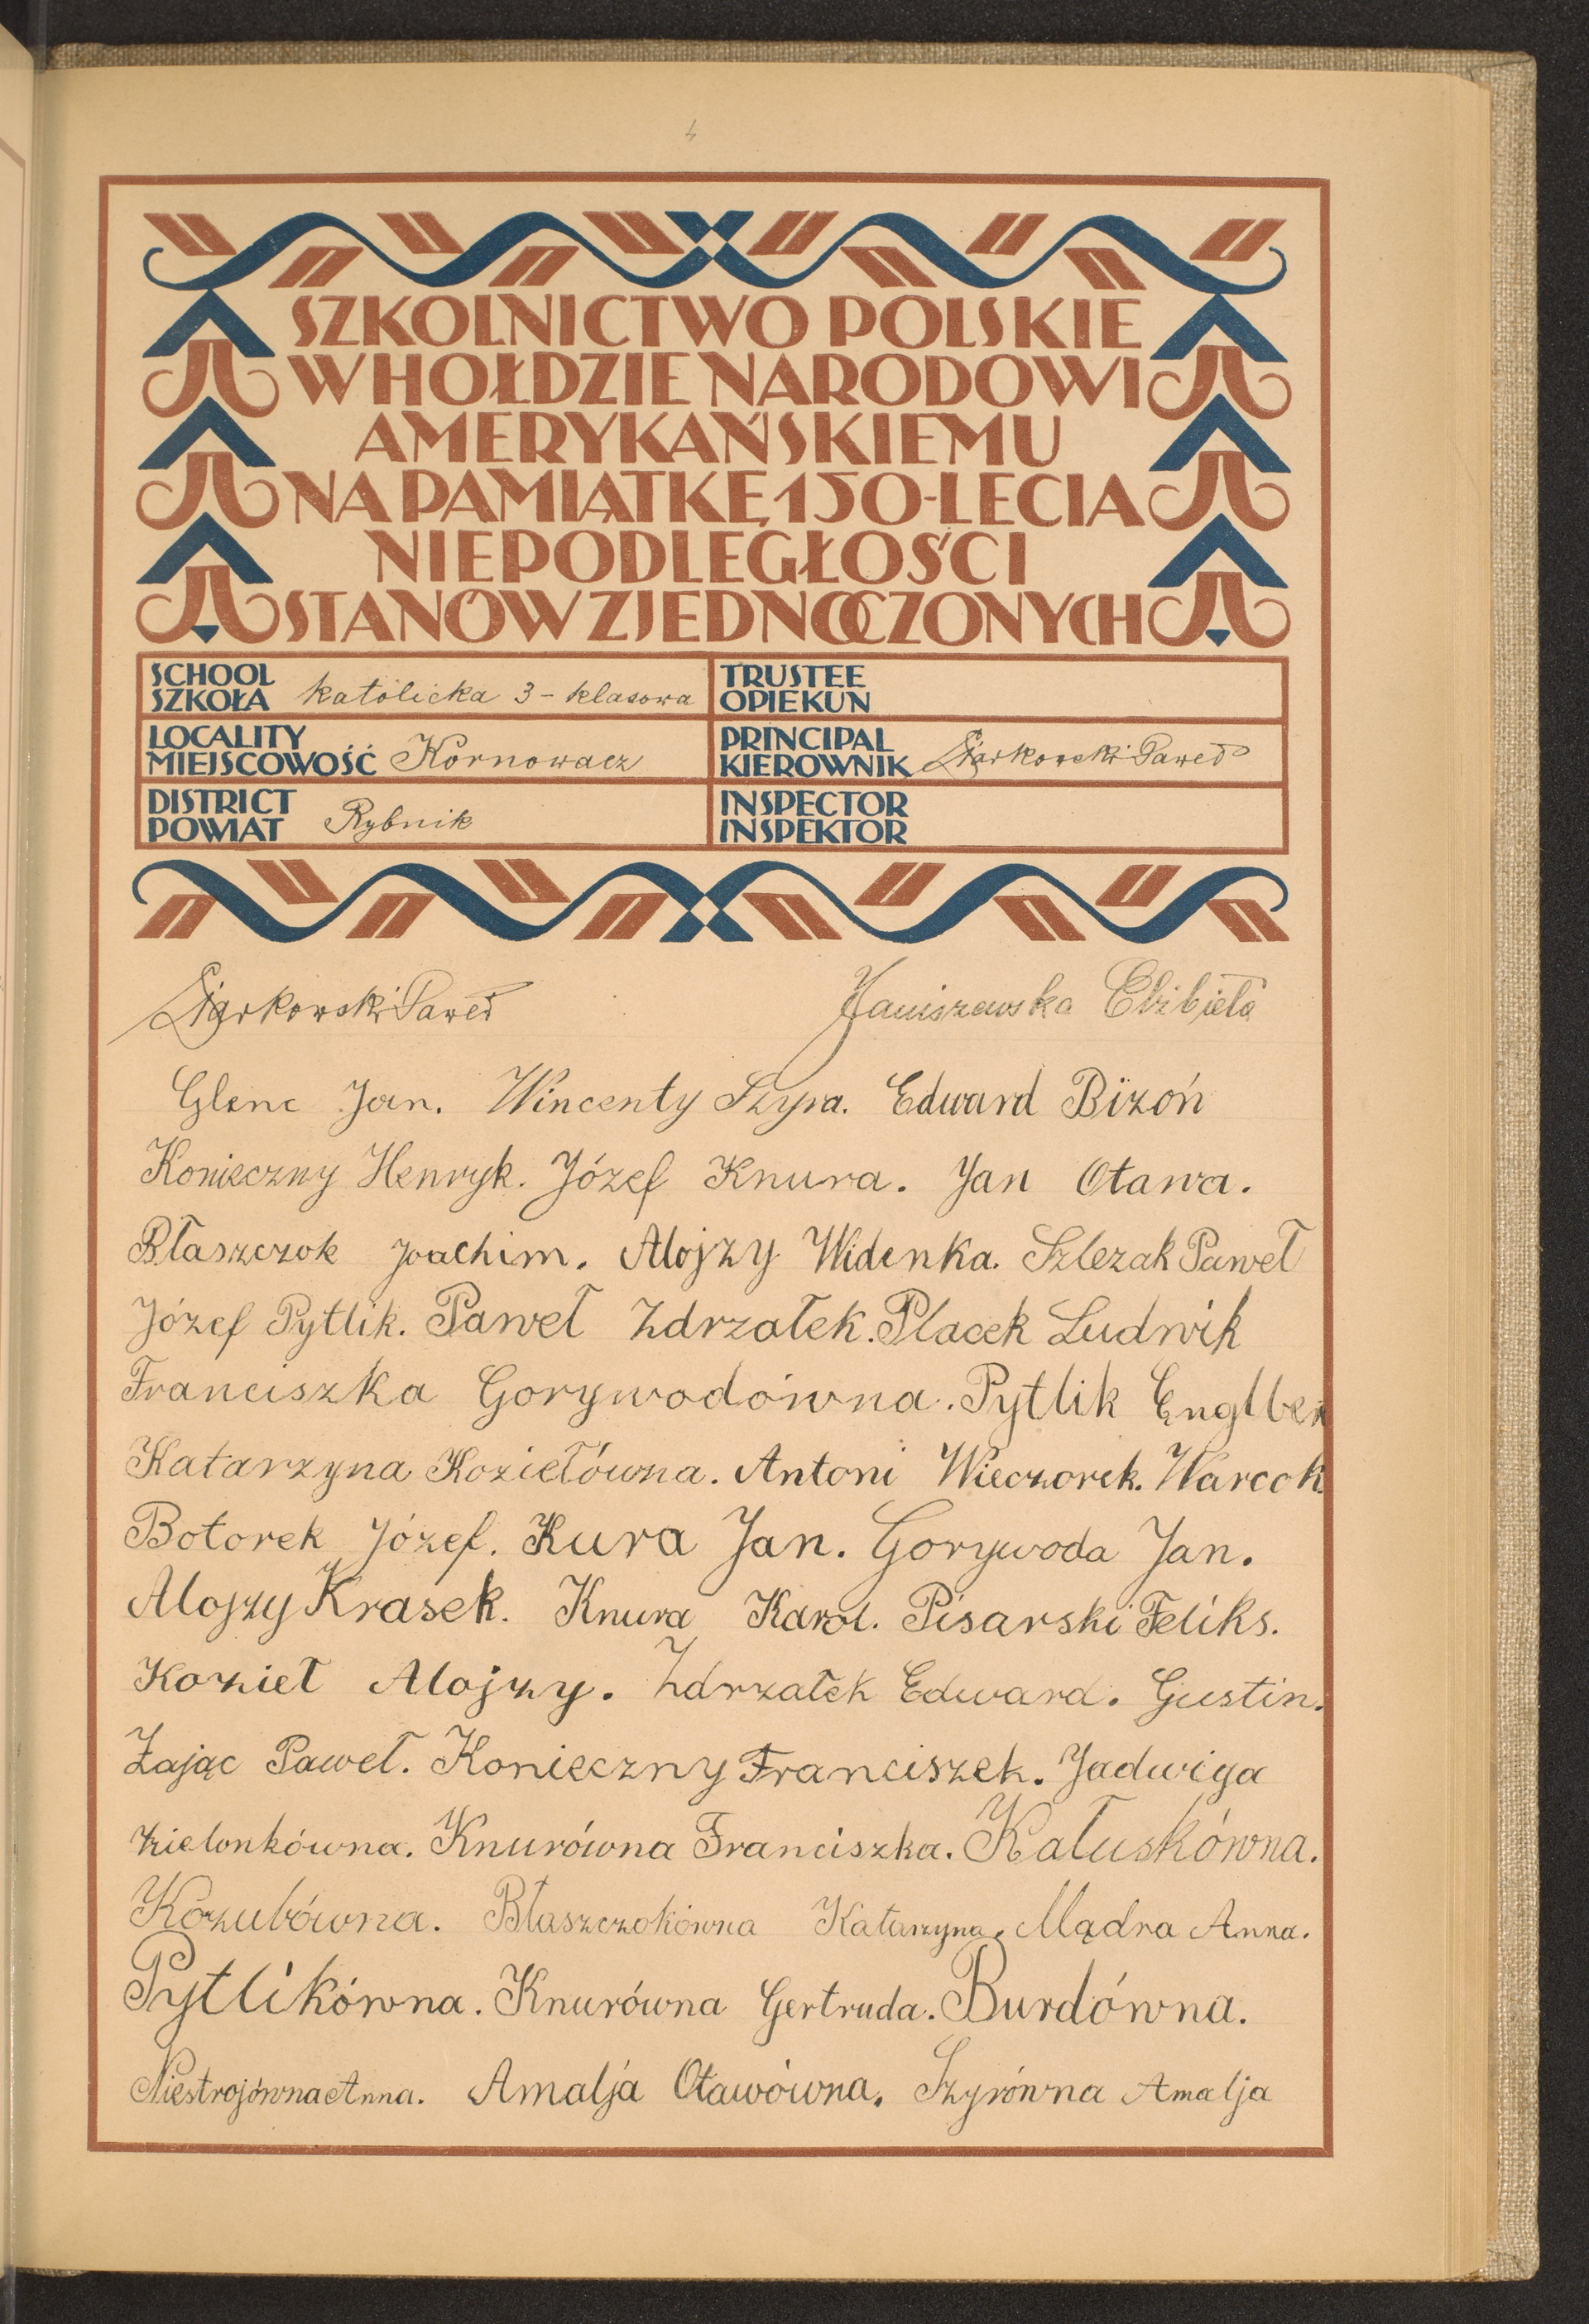 4
SZKOLNICTWO POLSKIE
W HOŁDZIE NARODOWI
AMERYKAŃSKIEMU
NA PAMIĄTKĘ 150-LECIA
NIEPODLEGŁOŚCI
STANÓW ZJEDNOCZONYCH
SCHOOL
SZKOŁA katolicka 3-klasowa
TRUSTEE
OPIEKUN
LOCALITY
MIEJSCOWOŚĆ Kornowacz
PRINCIPAL
KIEROWNIK Ziarkowski Paweł
DISTRICT
POWIAT Rybnik
INSPECTOR
INSPEKTOR
Ziarkowski Paweł Janiszewska Elżbieta
Glenc Jan. Wincenty Szyra. Edward Bizoń
Konieczny Henryk. Józef Knura. Jan Otawa.
Błaszczok Joachim. Alojzy Widenka. Szlezak Paweł
Józef Pytlik. Paweł Zdrzałek. Placek Ludwik
Franciszka Gorywodówna. Pytlik Englber
Katarzyna Koziełówna. Antoni Wieczorek. Warcok
Botorek Józef. Kura Jan. Gorywoda Jan.
Alojzy Krasek. Knura Karol. Pisarski Feliks.
Kozieł Alojzy. Zdrzałek Edward. Gustin.
Zając Paweł. Konieczny Franciszek. Jadwiga
Zielonkówna. Knurówna Franciszka. Kałuskówna.
Kozubówna. Błaszczokówna Katarzyna. Mądra Anna.
Pytlikówna. Knurówna Gertruda. Burdówna.
Niestrojówna Anna. Amalja Otawówna. Szyrówna Amalja